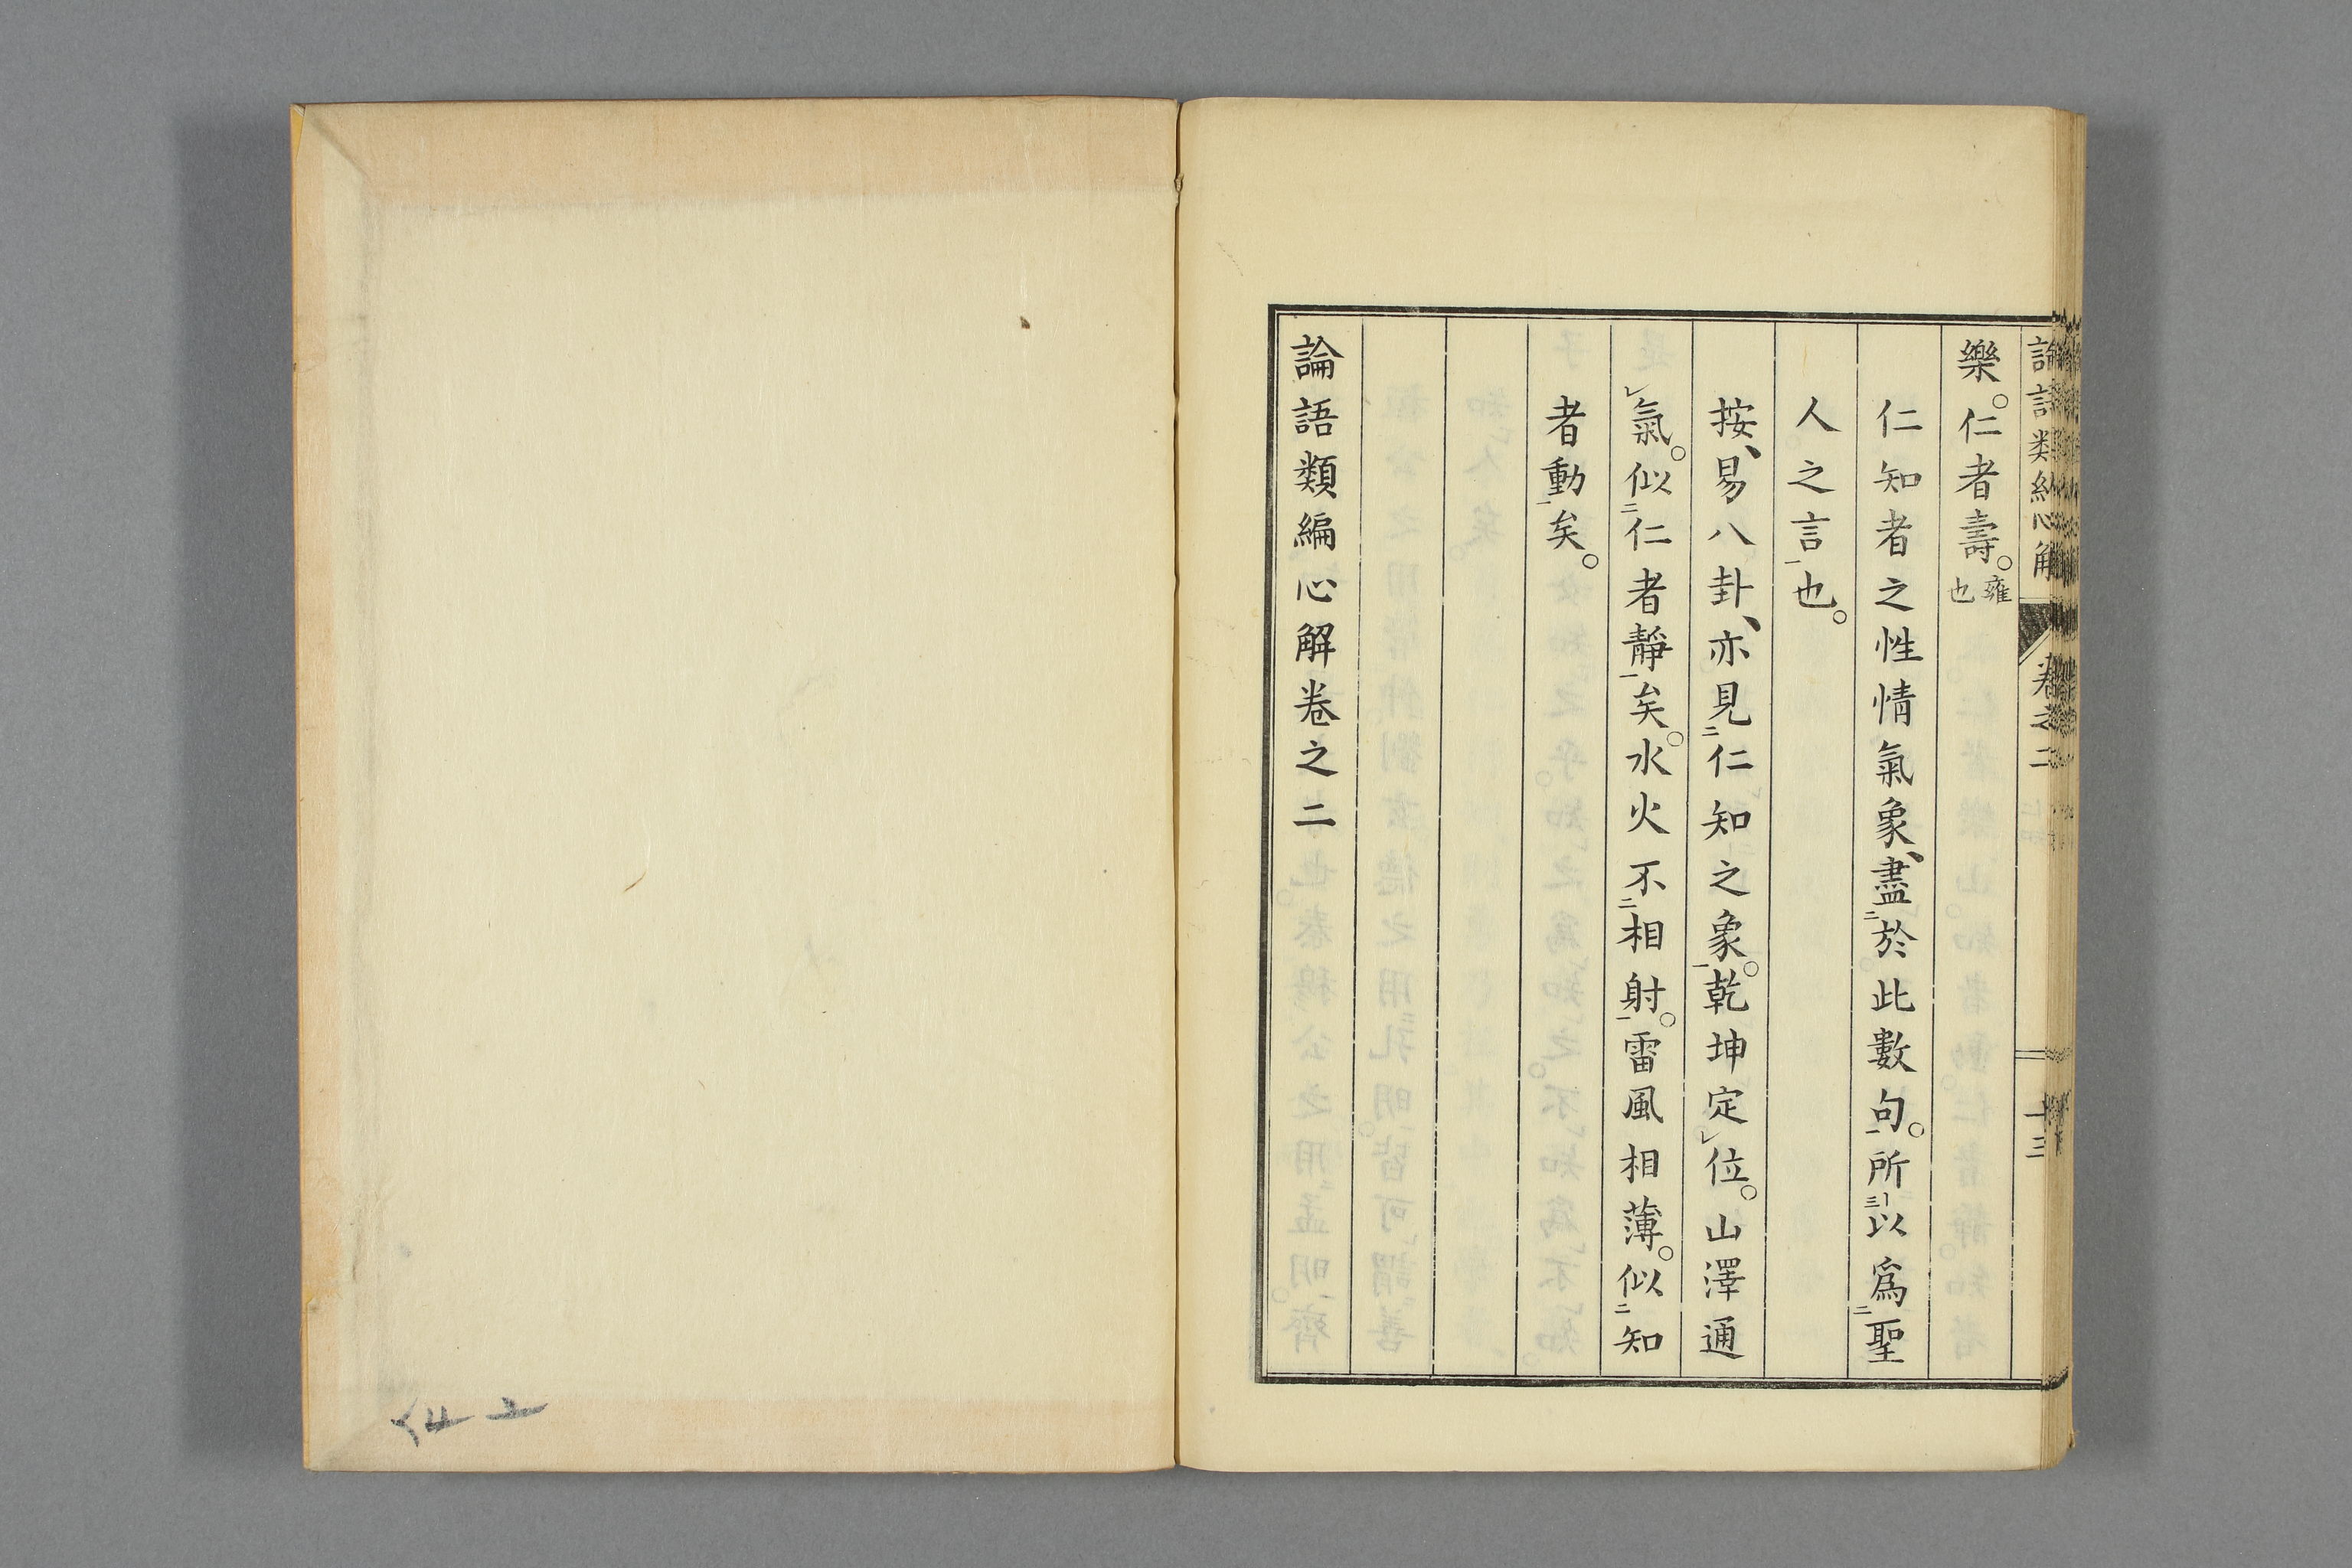 論語类編心解　卷之二　十三
樂。仁者壽。雍也
仁知者之性情氣象、盡㆓於此數句㆒。所㆔以爲㆓聖
人之言㆒也。
按、易八卦、亦見㆓仁知之象㆒。乾坤定㆑位。山澤通
㆑氣。似㆓仁者靜㆒矣。水火不㆓相射㆒。雷風相薄。似㆓知
者動㆒矣。
論語類編心解卷之二